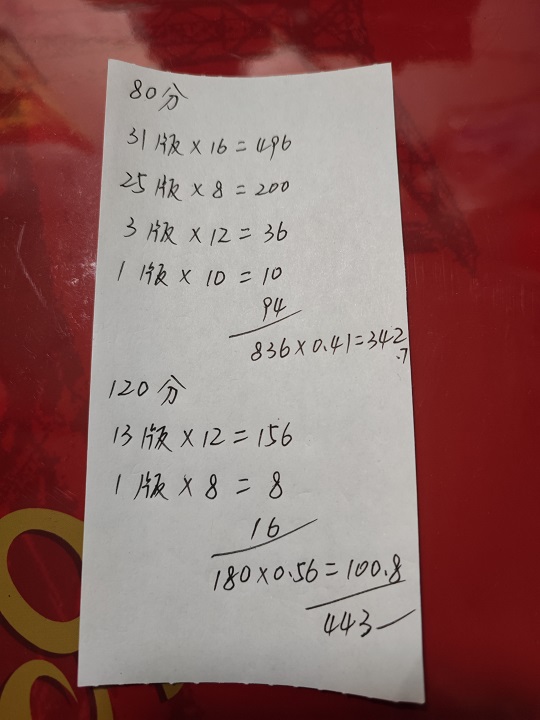 80分
31版×16=496
25版×8=200
3版×12=36
1版×10=10
94
836×0.41=342.7
120分
13版×12=156
1版×8=8
16
180×0.56=100.8
443